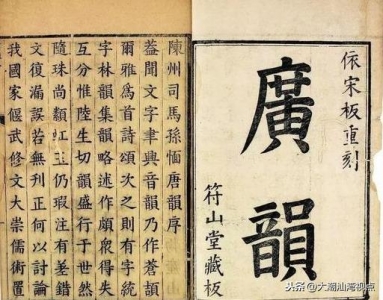 依宋板重刻
廣韻
符山堂藏板
陳州司馬孫愐唐韻序
蓋聞文字聿興音韻乃作蒼頡
爾雅爲首詩頌次之則有字統
字林韻集韻略述作頗衆得失
互分惟陸生切韻盛行于世然
隨珠尚纇虹玉仍瑕注有差錯
文復漏誤若無刊正何以討論
我國家偃武修文大崇儒術置
头条@大潮汕湾视点